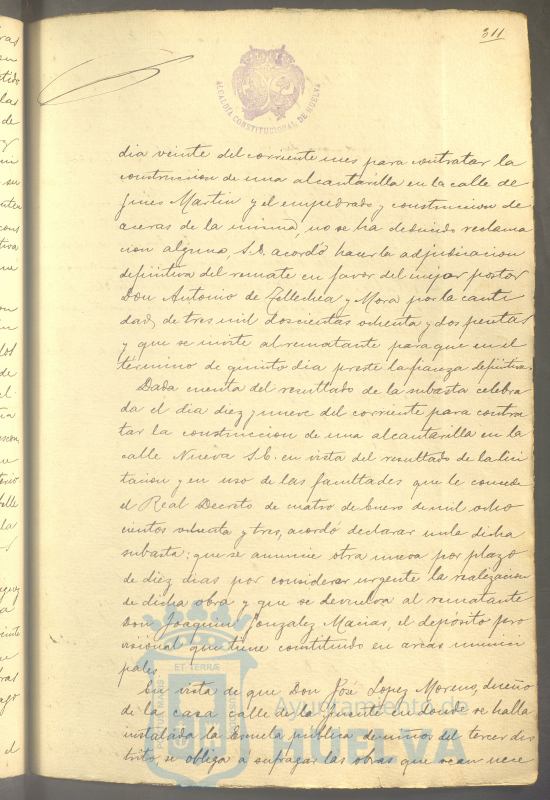 311
ALCALDÍA CONSTITUCIONAL DE HUELVA
dia veinte del corriente mes para contratar la
construccion de una alcantarilla en la calle de
Jines Martin y el empedrado y construccion de
aceras de la misma, no se ha deducido reclama
cion alguna, S.E. acordó hacer la adjudicacion
definitiva del remate en favor del mejor postor
Don Antonio de Zellechea y Mora por la canti
dad, de tres mil doscientas ochenta y dos pesetas
y que se invite al rematante para que en el
término de quinto dia preste la fianza definitiva.
Dada cuenta del resultado de la subasta celebra
da el dia diez y nueve del corriente para contra
tar la construccion de una alcantarilla en la
calle Nueva S.E. en vista del resultado de la lici
tacion y en uso de las facultades que le concede
el Real Decreto de cuatro de Enero de mil ocho
cientos ochenta y tres, acordó declarar nula dicha
subasta: que se anuncie otra nueva por plazo
de diez dias por considerar urgente la realizacion
de dicha obra y que se devuelva al rematante
Don Joaquin Gonzalez Macias, el depósito pro
visional que tiene constituido en arcas munici
pales
En vista de que Don José Lopez Moreno, dueño
de la casa calle de la fuente en donde se halla
instalada la Escuela publica de niños del tercer dis
trito, se obliga a sufragar las obras que sean nece
ET TERRÆ
PORTUS MARIS
CUSTODIA
Ayuntamiento de
HUELVA